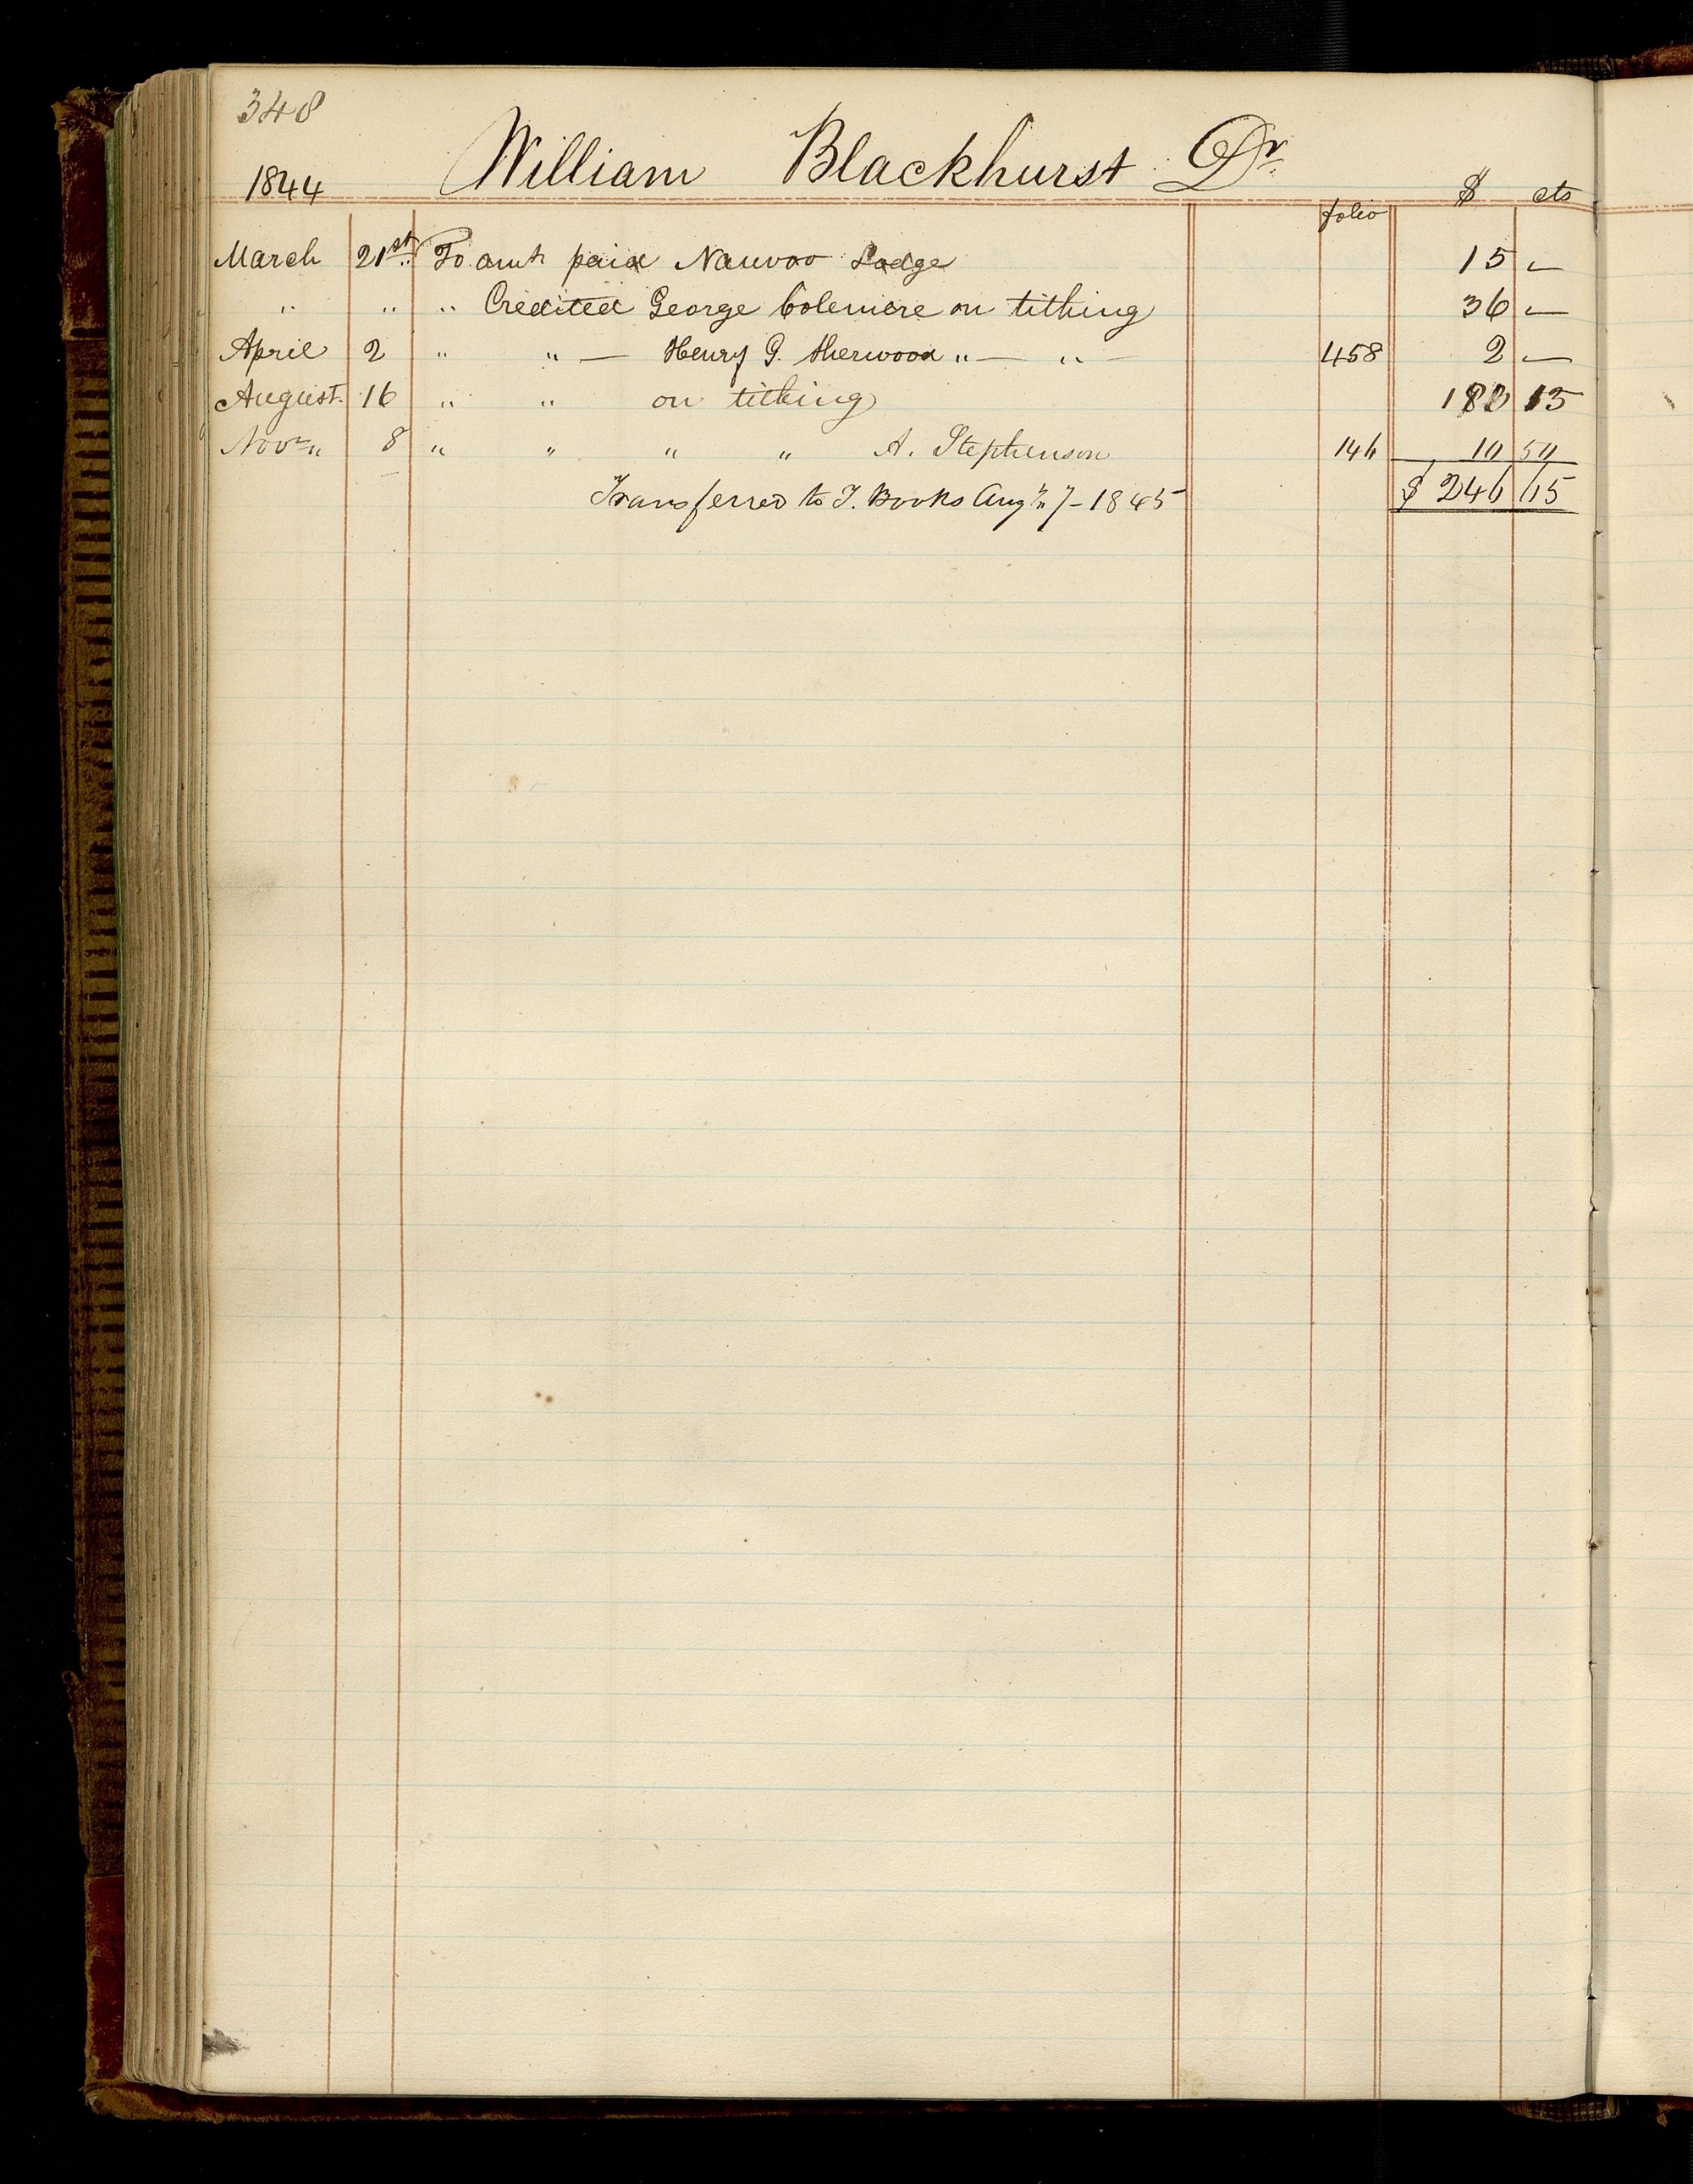 348
William Blackhurst Dr.
1844 $ cts
folio
March 21st. To amt paid Nauvoo Lodge 15 —
" " " Credited George Colemere on tithing 36 —
April 2 " " — Henry G. Sherwood " — " — 458 2 —
August. 16 " " on tithing 183 15
Novr " 8 " " " " A. Stephenson 146 10 50
Transferred to T. Books Aug " 7 - 1845 $ 246 65